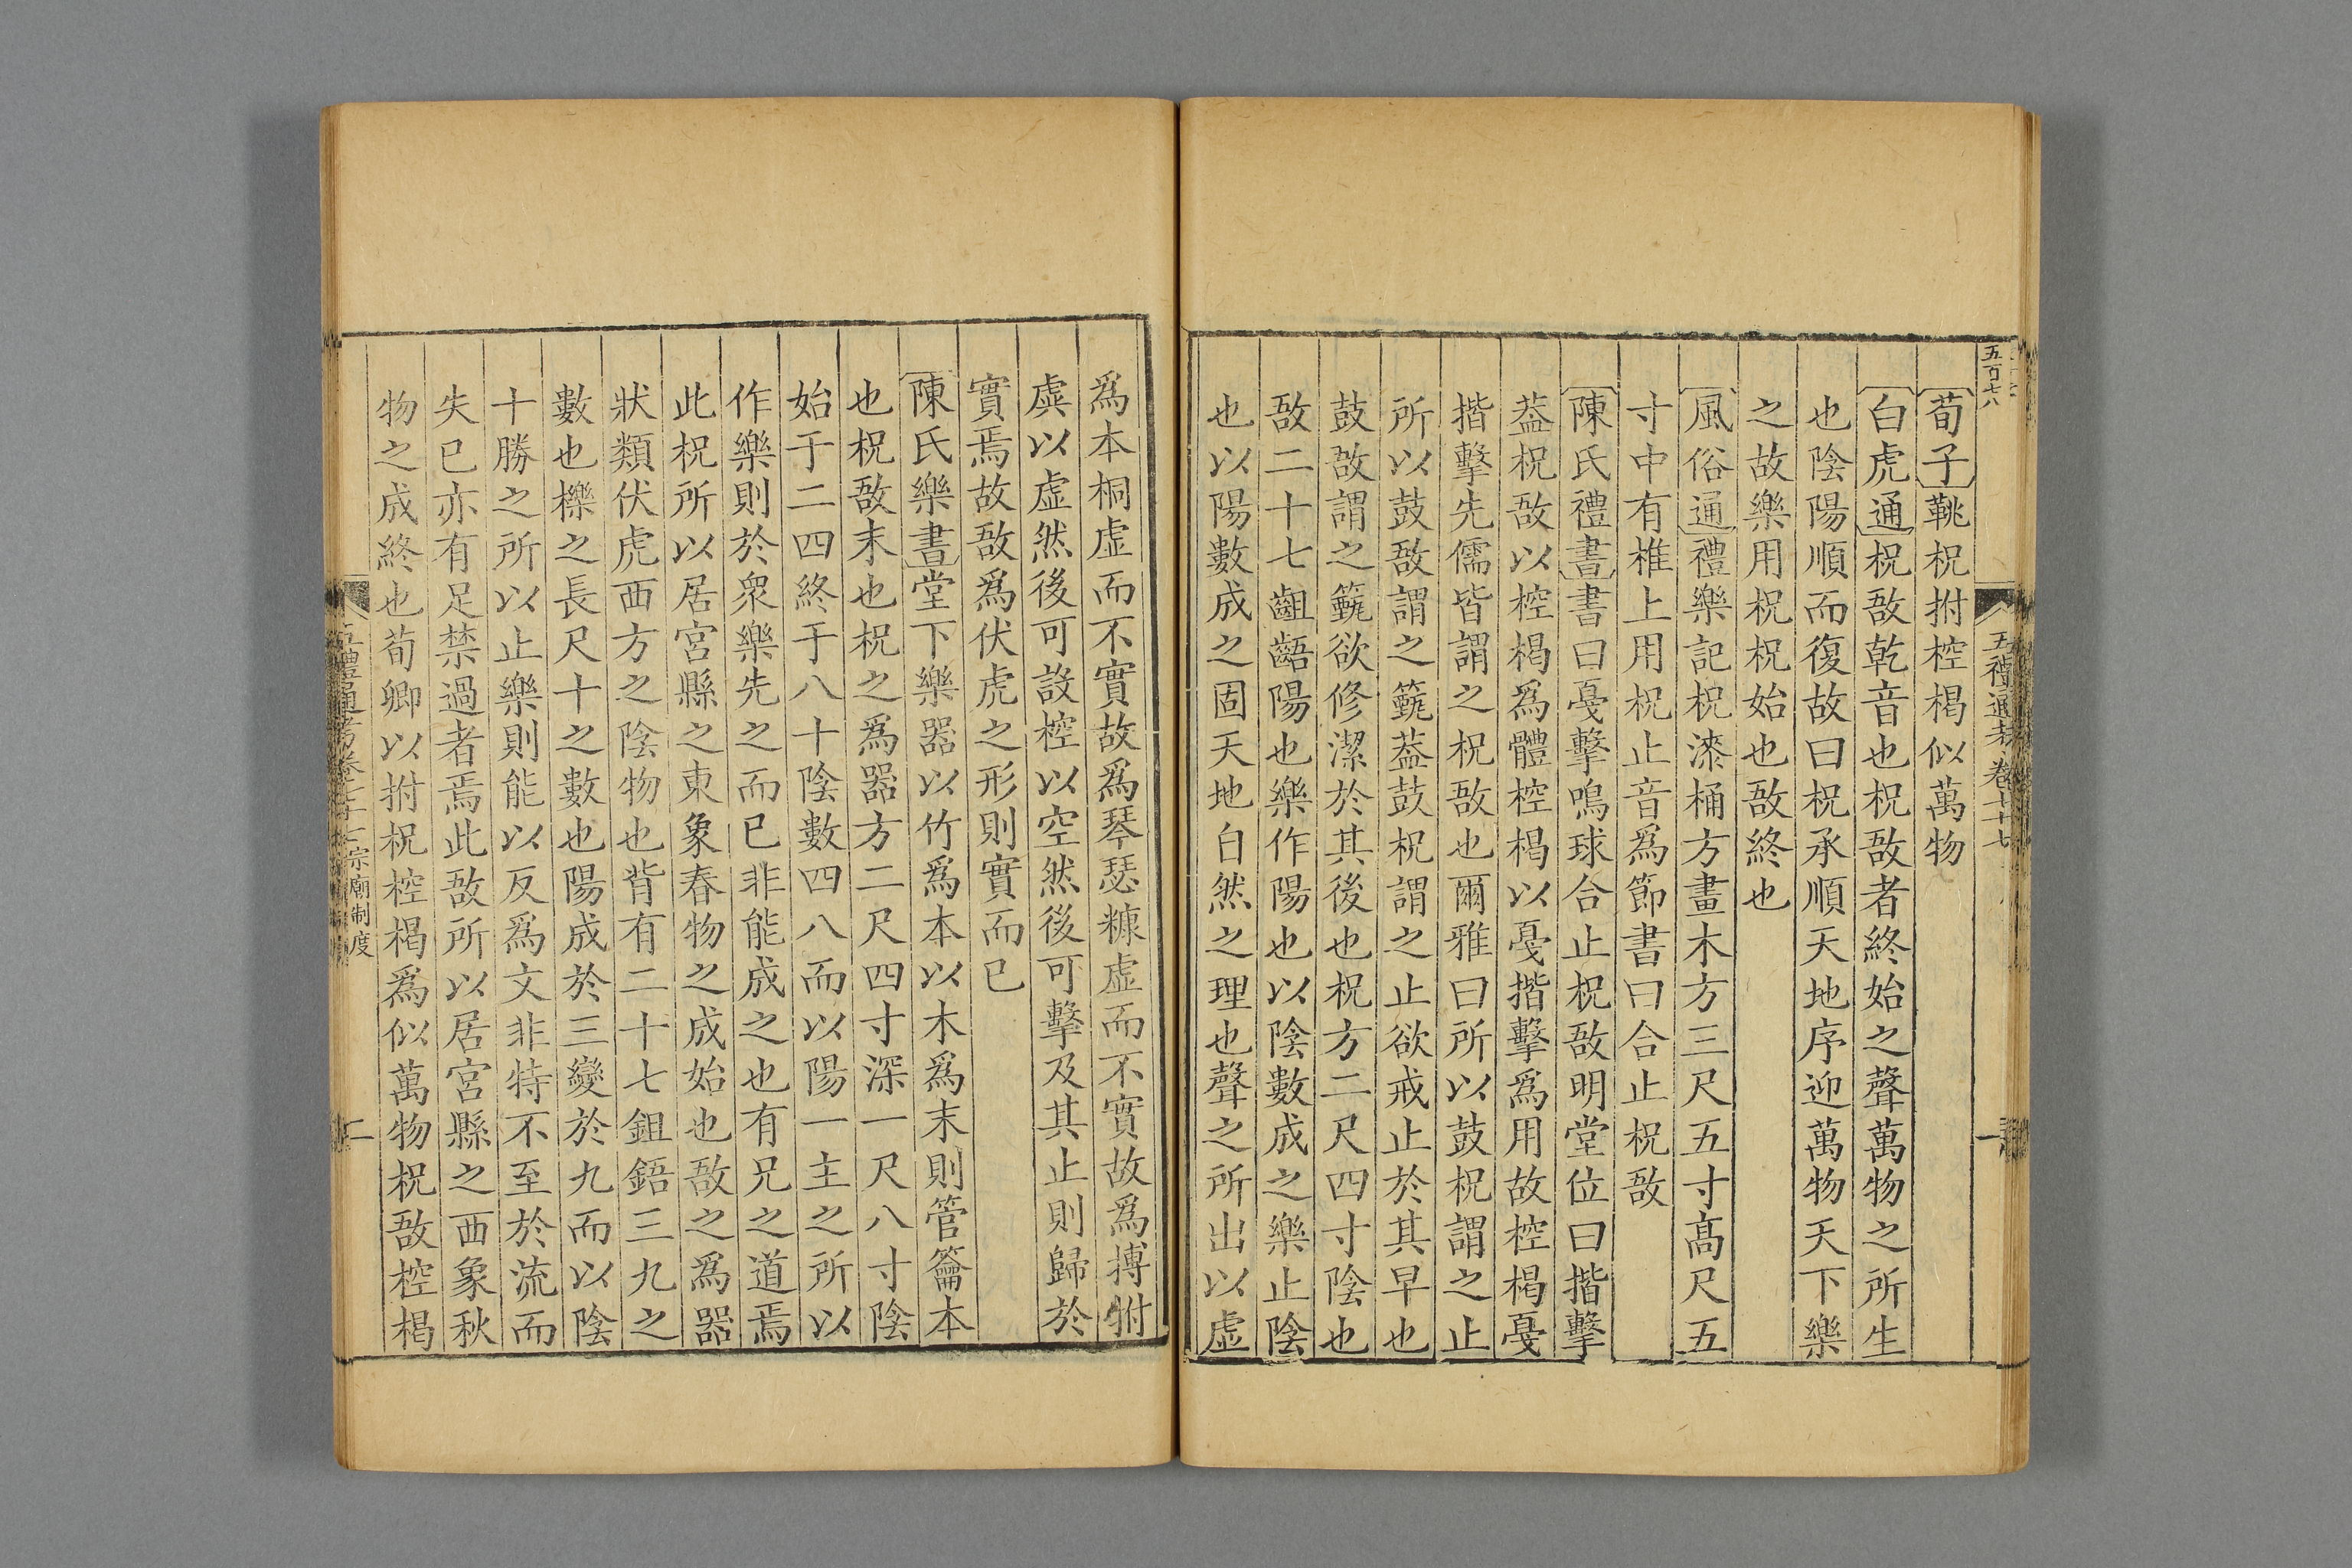 五百七八
五禮通考卷七十七
一
荀子鞉柷拊椌楬似萬物
白虎通柷敔乾音也柷敔者終始之聲萬物之所生
也陰陽順而復故曰柷承順天地序迎萬物天下樂
之故樂用柷柷始也敔終也
風俗通禮樂記柷漆桶方畫木方三尺五寸高尺五
寸中有椎上用柷止音爲節書曰合止柷敔
陳氏禮書書曰戞擊鳴球合止柷敔明堂位曰揩擊
葢柷敔以椌楬爲體椌楬以戞揩擊爲用故椌楬戞
揩擊先儒皆謂之柷敔也爾雅曰所以鼓柷謂之止
所以鼓敔謂之籈葢鼓柷謂之止欲戒止於其早也
鼓敔謂之籈欲修潔於其後也柷方二尺四寸陰也
敔二十七齟齬陽也樂作陽也以陰數成之樂止陰
也以陽數成之固天地自然之理也聲之所出以虛
爲本桐虛而不實故爲琴瑟糠虛而不實故爲搏拊
虡以虛然後可設椌以空然後可擊及其止則歸於
實焉故敔爲伏虎之形則實而已
陳氏樂書堂下樂器以竹爲本以木爲末則管籥本
也柷敔末也柷之爲器方二尺四寸深一尺八寸陰
始于二四終于八十陰數四八而以陽一主之所以
作樂則於衆樂先之而已非能成之也有兄之道焉
此柷所以居宮縣之東象春物之成始也敔之爲器
狀類伏虎西方之陰物也背有二十七鉏鋙三九之
數也櫟之長尺十之數也陽成於三變於九而以陰
十勝之所以止樂則能以反爲文非特不至於流而
失已亦有足禁過者焉此敔所以居宮縣之西象秋
物之成終也荀卿以拊柷椌楬爲似萬物柷敔椌楬
五禮通考卷七十七宗廟制度
二